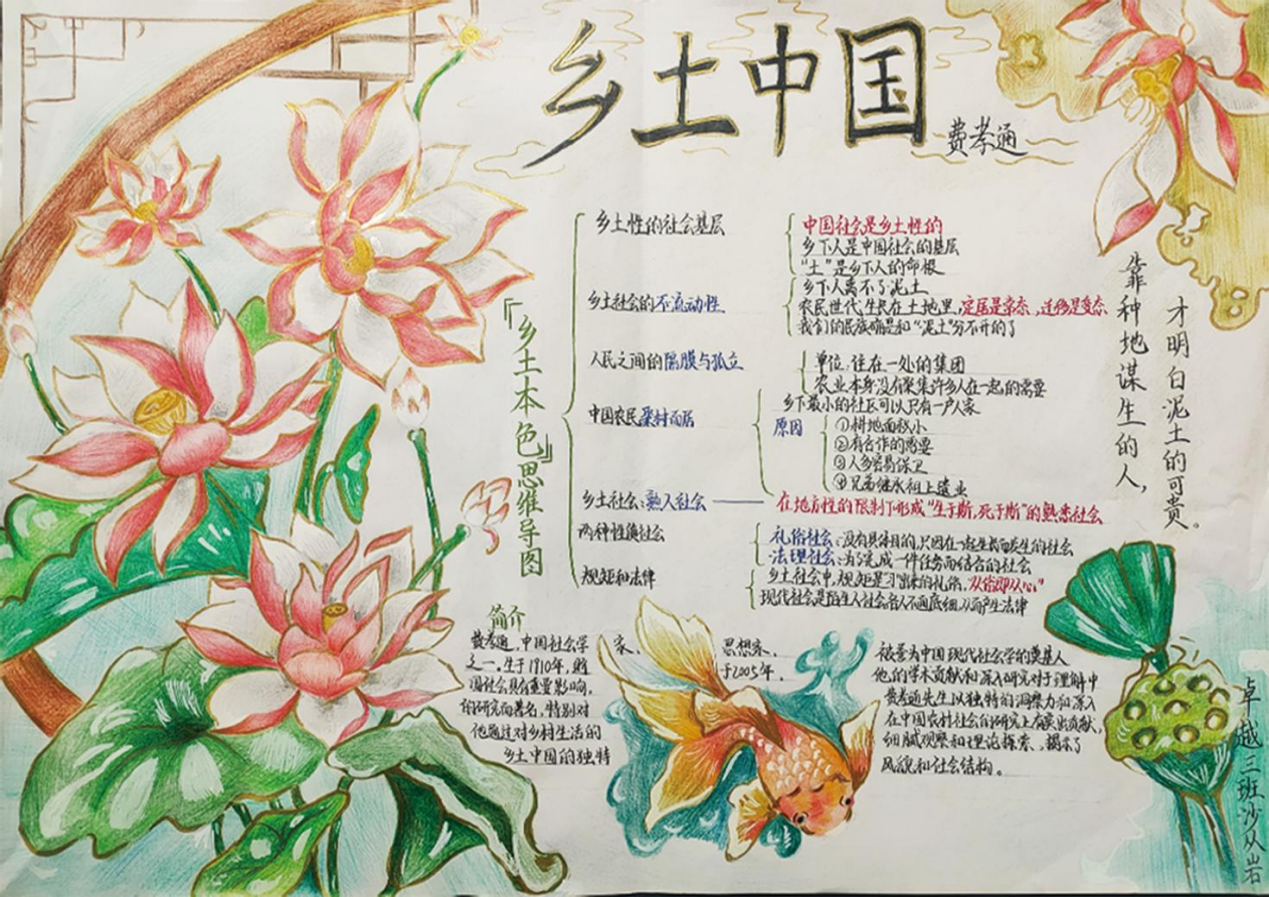 乡土中国
费孝通
『乡土本色』思维导图
乡土性的社会基层
中国社会是乡土性的
乡下人是中国社会的基层
"土"是乡下人的命根
乡土社会的不流动性
乡下人离不了泥土
农民世代生长在土地里,定居是常态,迁移是变态
我们的民族确是和"泥土"分不开的了
人民之间的隔膜与孤立
单位:住在一处的集团
农业本身没有聚集许多人在一起的需要
中国农民聚村而居
乡下最小的社区可以只有一户人家
原因
①耕地面积小
②有合作的需要
③人多容易保卫
④兄弟继承祖上遗业
乡土社会:熟人社会
在地方性的限制下形成"生于斯,死于斯"的熟悉社会
两种性质社会
礼俗社会:没有具体目的,只因在一起生长而发生的社会
法理社会:为了完成一件任务而结合的社会
规矩和法律
乡土社会中,规矩是习出来的礼俗,"从俗即从心"
现代社会是陌生人社会各人不知底细,从而产生法律
靠种地谋生的人,
才明白泥土的可贵。
简介
费孝通,中国社会学家、思想家、被誉为中国现代社会学的奠基人
之一。生于1910年,逝于2005年,他的学术贡献和深入研究对于理解中
国社会具有重要影响,费孝通先生以独特的洞察力和深入
的研究而著名,特别对在中国农村社会的研究上有突出贡献,
他通过对乡村生活的细腻观察和理论探索,揭示了
乡土中国的独特风貌和社会结构。
卓越三班沙从岩